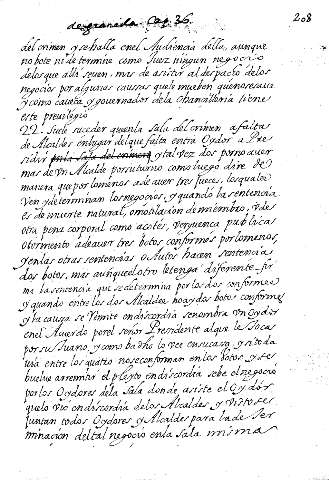 de granada. Cap. 36.
208
del crimen y se halla en el Audiencia della, aunque
no bote ni determine como Juez ningun negocio
de los que alli se ven. mas de asitir al despacho de los
negocios por algunas caussas que lo mueben que no sea assi
y como caveza y governador de la Chancilleria tiene
este previlegio
22. Suele suceder que en la Sala del crimen a falta
de Alcaldes en lugar del que falta entra Oydor a Pre
sidir en la Sala del crimen y tal vez dos por no aver
mas de un Alcalde por su turno como luego diré de
manera que por lo menos a de aver tres jueces, los quales
ven y determinan los negocios, y quando la sentencia
es de muerte natural, o mutilacion de miembro, v de
otra pena corporal como acotes, verguenca publica
o tormento a de aver tres botos conformes por lo menos,
y en las otras sentencias o Autos hacen sentencia
dos botos, mas aunque el otro le tenga diferente fir
ma la sentencia que se determina por los dos conformes
y quando entre los dos Alcaldes no ay dos botos conformes
y la causa se Remite en discordia se nombra un Oydor
en el Acuerdo por el señor Presidente al que le toca
por su turno, y como ba dho lo vee en su casa, y si toda
via entre los quatro no se conforman en los votos y se
buelve a remitir el pleyto en discordia sebe el negocio
por los Oydores de la Sala donde asiste el Oydor
que lo vio en discordia de los Alcaldes, y vistose
juntan todos Oydores y Alcaldes para la deter
minación del tal negocio en la Sala. misma